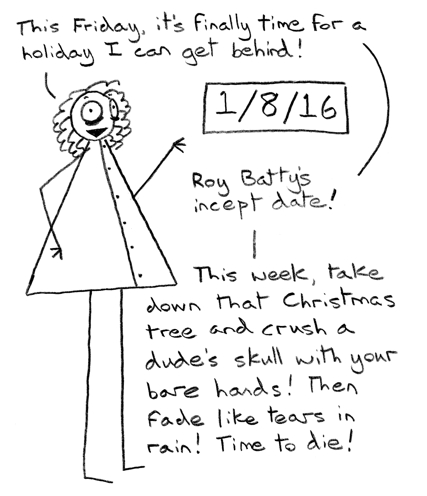 This Friday, it's finally time for a
holiday I can get behind!
1/8/16
Roy Batty's
incept date!
This week, take
down that Christmas
tree and crush a
dude's skull with your
bare hands! Then
fade like tears in
rain! Time to die!